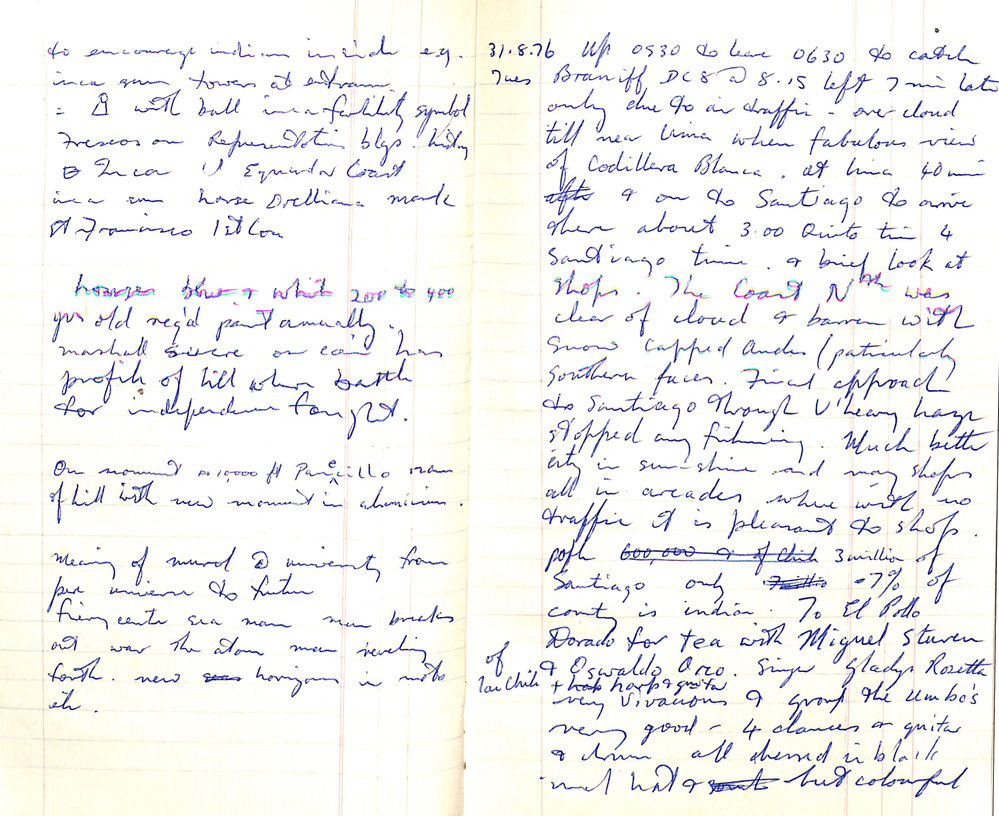 to encourage indians inside e.g.
inca sun towers at entrance.
= with ball inca fertility symbol
Frescos on Representation blgs. history
Inca Equador Coast
inca sun horse Orelliana monk
St Francisco 1st Con
houses blue & white 200 to 400
yrs old req'd paint annually.
marshall sucre on coin has
profile of hill where battle
for independence fought.
On monument 10,000 ft Panecillo name
of hill with new monument in aluminium.
Meaning of mural @ university from
pre universe to future
fiery centre sea man man breaks
out war the atom man
forth. new horizons in
etc.
31.8.76 Up 0530 to leave 0630 to catch
Tues Braniff DC8 @ 8.15 left 7 min late
only due to air traffic - over cloud
till near Lima when fabulous view
of Codillera Blanca. at Lima 40 min
after & on to Santiago to arrive
there about 3.00 Quito time 4
Santiago time. & brief look at
shops. The Coast Nth was
clear of cloud & barren with
snow capped Andes (paticularly
southern faces. Final approach
to Santiago through V'heavy haze
stopped any filming. Much better
city in sun-shine and many shops
all in arcades where with no
traffic it is pleasant to shop.
popln 600,000 & of Chile 3 million of
Santiago only -7% of
country is indian. To El Pollo
Dorado for tea with Miguel Stuven
& Oswaldo Orzo. Singer Gladys Rosetta
of Los Chile + harp & guitar
very Vivacious & group the Umbo's
very good - 4 dancers or guitar
& drum all dressed in black
hat & but colourful